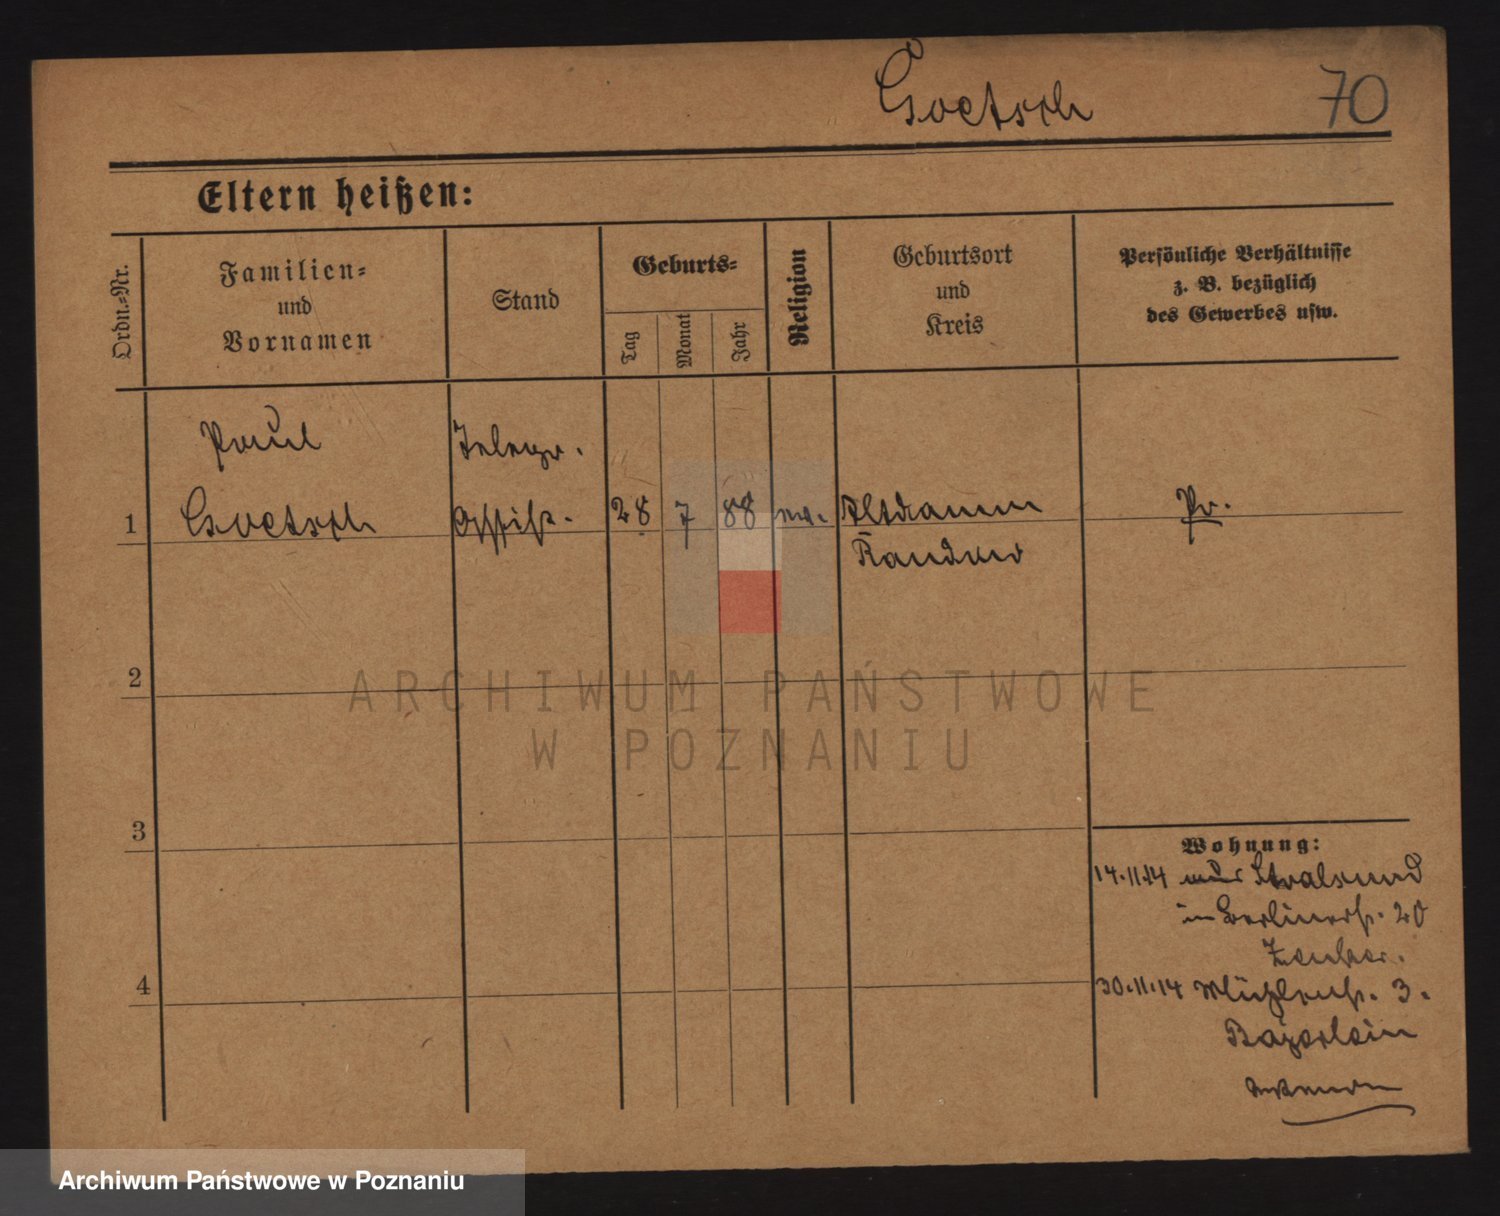 Goetsch 70
Eltern heißen:
Ordn.=Nr.
Familien=
und
Vornamen
Stand
Geburts=
Tag
Monat
Jahr
Religion
Geburtsort
und
Kreis
Persönliche Verhältnisse
z. B. bezüglich
des Gewerbes usw.
Paul Telegr.
1 Goetsch Assist. 28 7 88 ev. Altdamm Pr.
Randow
2
3
4
Wohnung:
14.11.14 aus Stralsund
in Berlinerstr. 20
30.11.14 Mühlenstr. 3.
Bazerlein
ARCHIWUM PAŃSTWOWE
W POZNANIU
Archiwum Państwowe w Poznaniu